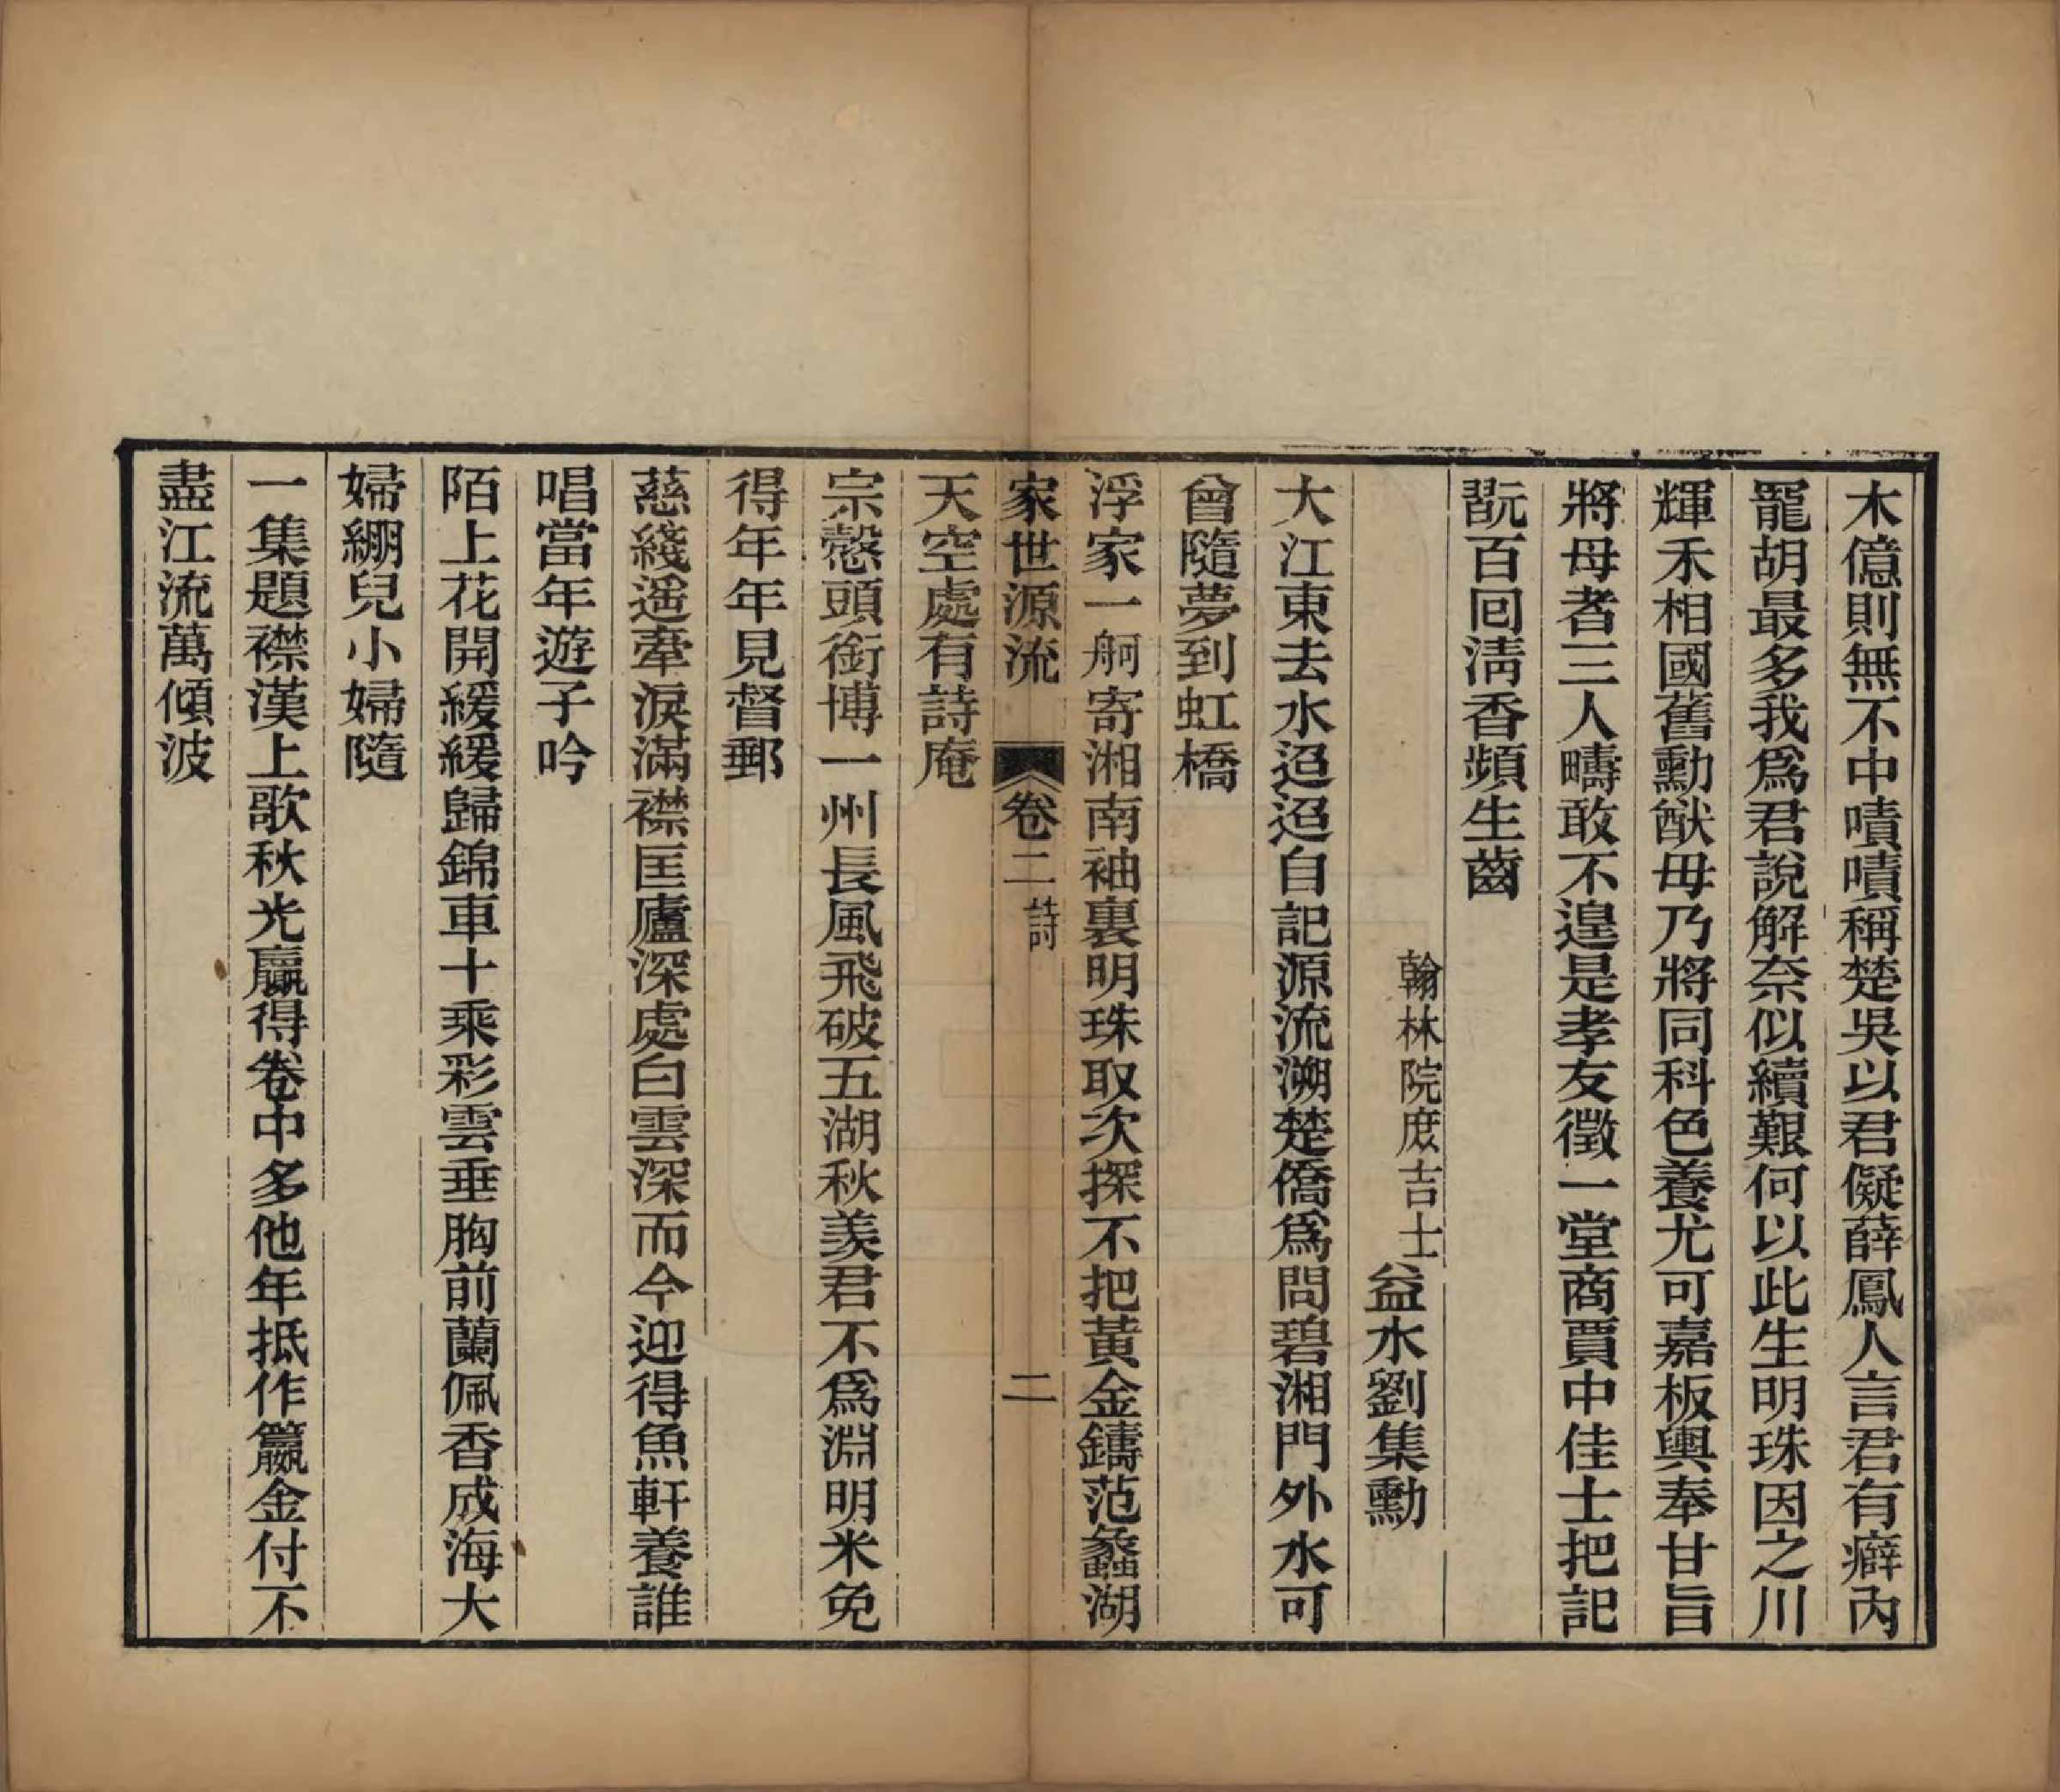 木億則無不中嘖嘖稱楚吳以君儗薛鳳人言君有癖內
罷胡最多我爲君說解奈似續艱何以此生明珠因之川
輝禾相國舊勳猷毋乃將同科色養尤可嘉板輿奉甘旨
將母者三人疇敢不遑是孝友徵一堂商賈中佳士把記
翫百回淸香頻生齒
翰林院庶吉士益水劉集勳
大江東去水迢迢自記源流溯楚僑爲問碧湘門外水可
曾隨夢到虹橋
浮家一舸寄湘南袖裏明珠取次探不把黃金鑄范蠡湖
家世源流 卷二 詩 二
天空處有詩庵
宗慤頭銜博一州長風飛破五湖秋羨君不爲淵明米免
得年年見督郵
慈綫遥牽淚滿襟匡廬深處白雲深而今迎得魚軒養誰
唱當年遊子吟
陌上花開緩緩歸錦車十乘彩雲垂胸前蘭佩香成海大
婦綳兒小婦隨
一集題襟漢上歌秋光贏得卷中多他年抵作籯金付不
盡江流萬傾波